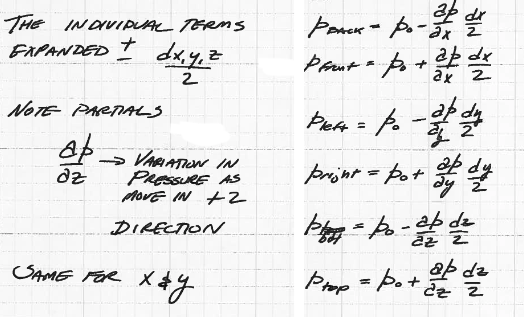 THE INDIVIDUAL TERMS
EXPANDED ± dx,y,z/2
NOTE PARTIALS
∂p/∂z → VARIATION IN
PRESSURE AS
MOVE IN +z
DIRECTION
SAME FOR x & y
p_BACK = p₀ - ∂p/∂x dx/2
p_front = p₀ + ∂p/∂x dx/2
p_left = p₀ - ∂p/∂y dy/2
p_right = p₀ + ∂p/∂y dy/2
p_bot = p₀ - ∂p/∂z dz/2
p_top = p₀ + ∂p/∂z dz/2